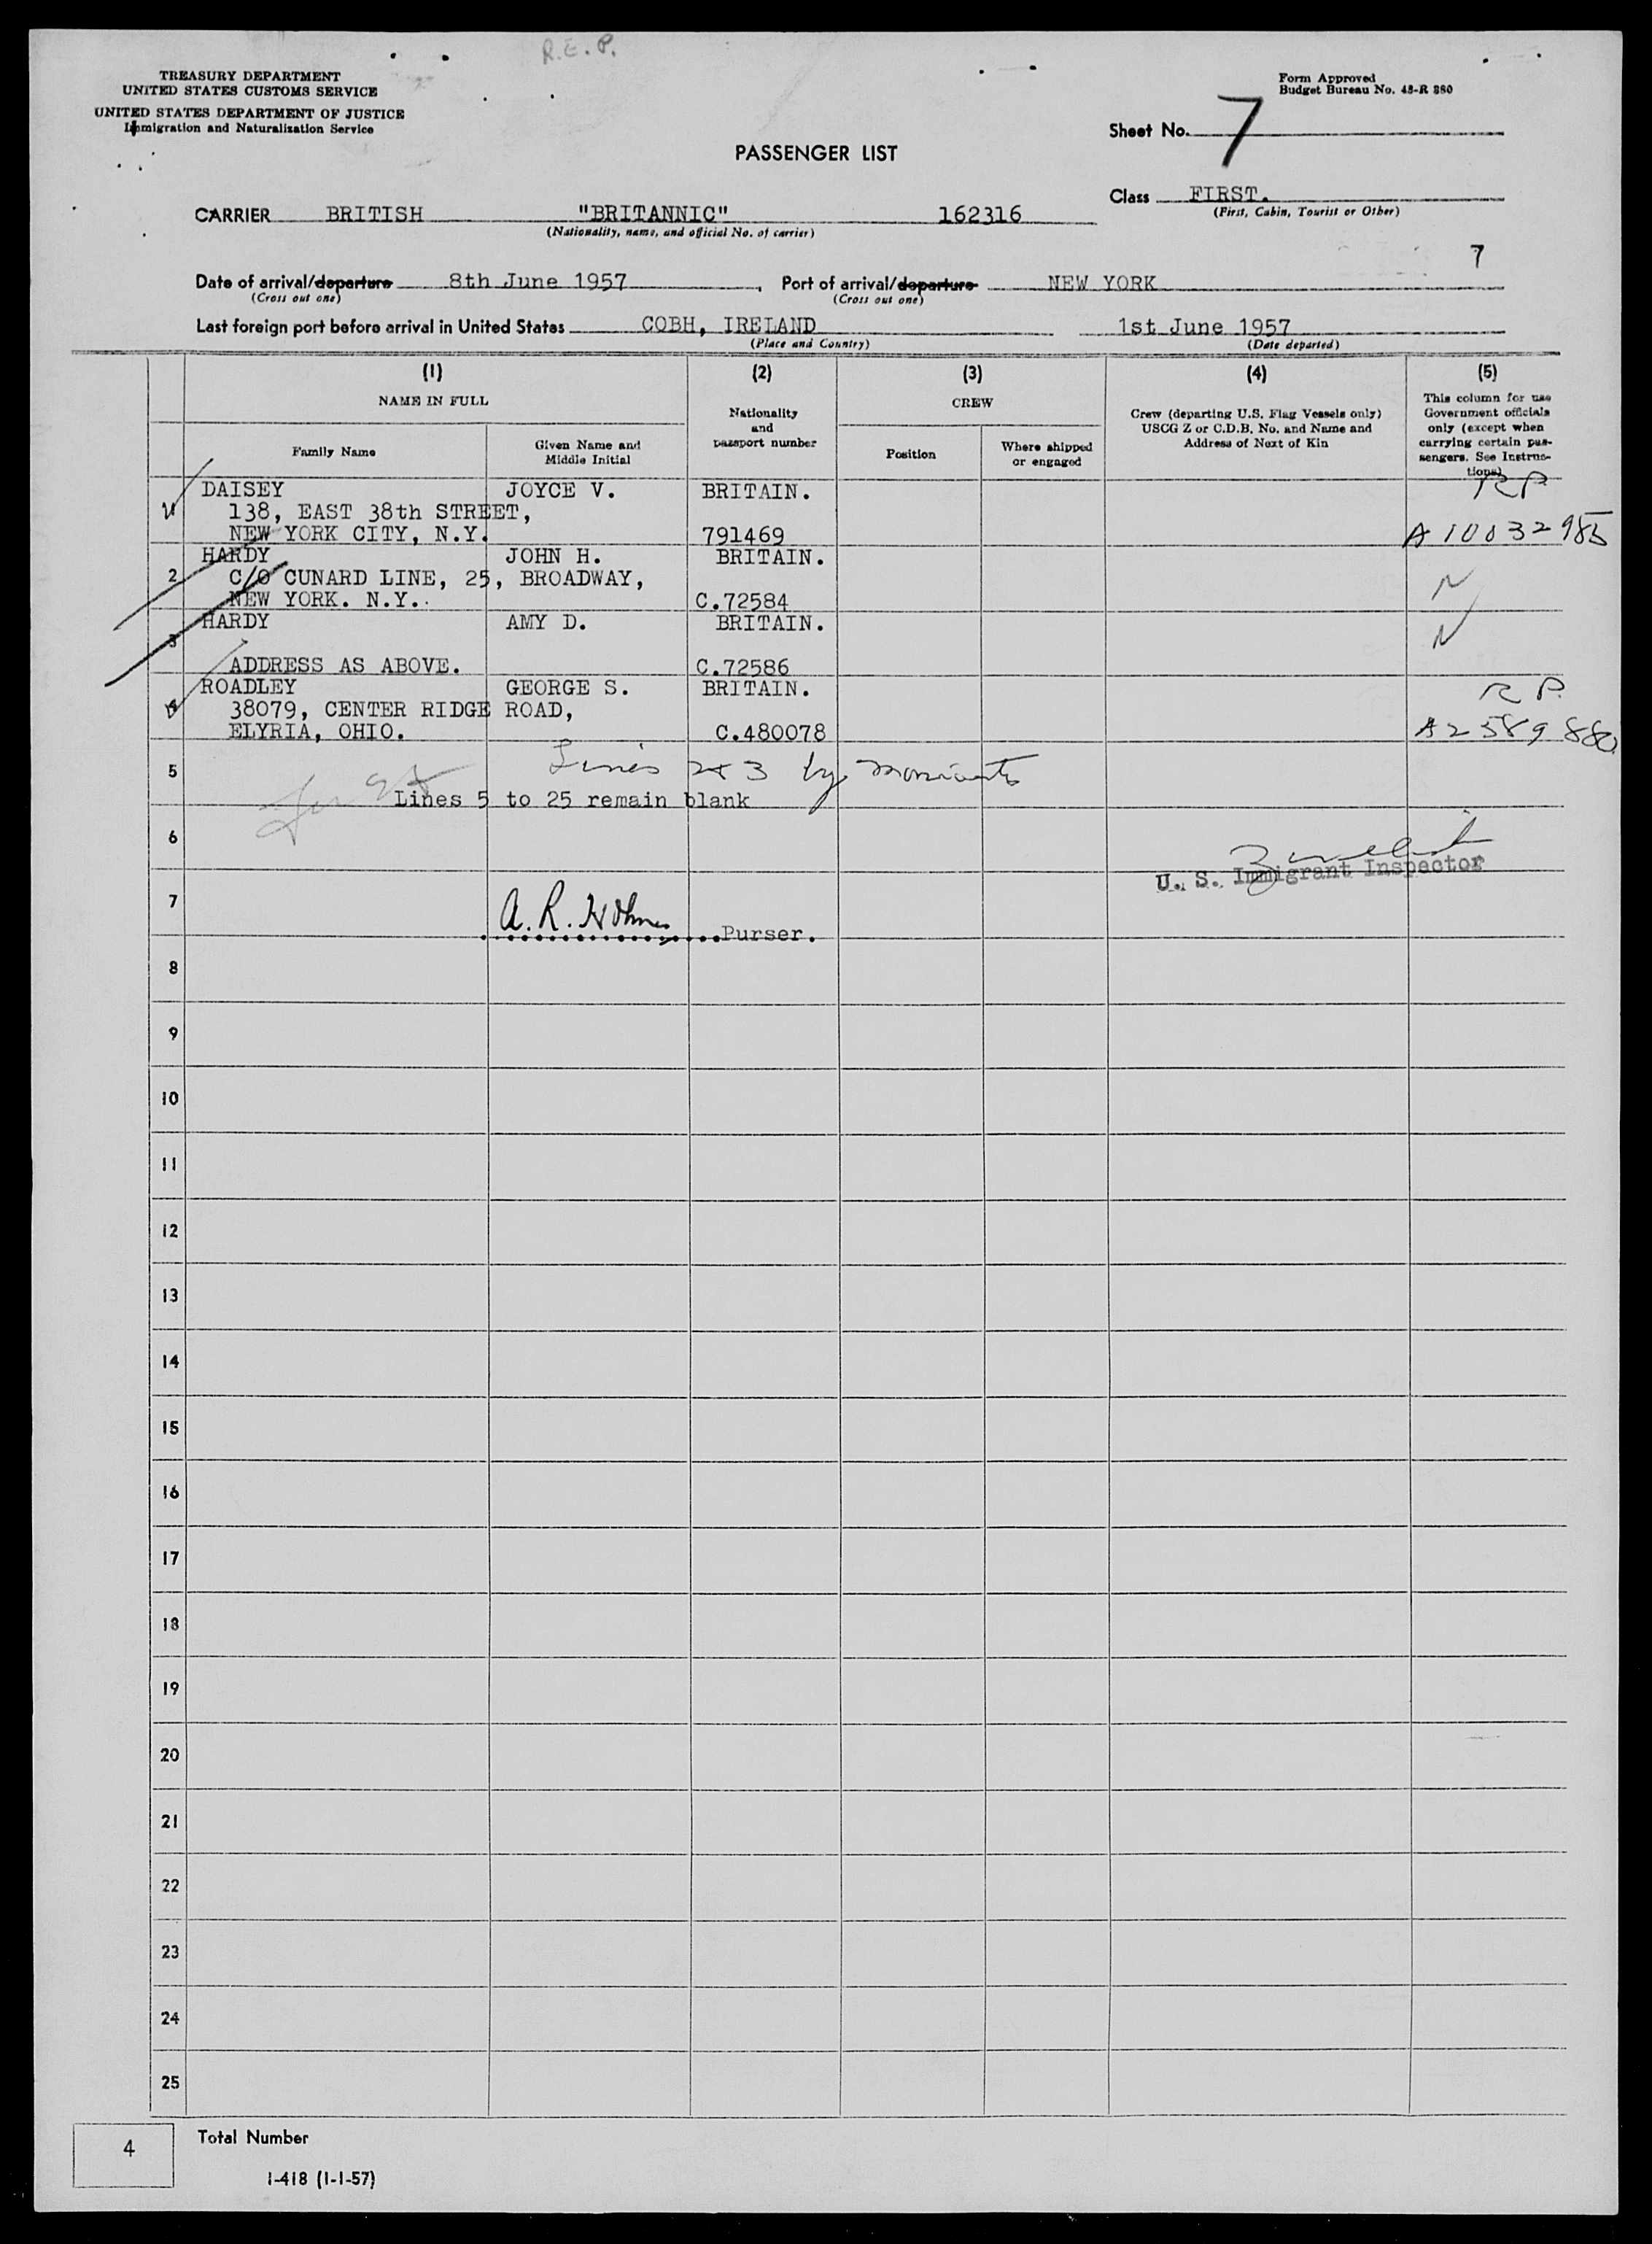 R.E.P.
TREASURY DEPARTMENT
UNITED STATES CUSTOMS SERVICE
UNITED STATES DEPARTMENT OF JUSTICE
Immigration and Naturalization Service
Form Approved
Budget Bureau No. 43-R 380
Sheet No. 7
PASSENGER LIST
Class FIRST.
(First, Cabin, Tourist or Other)
CARRIER BRITISH "BRITANNIC" 162316
(Nationality, name, and official No. of carrier)
7
Date of arrival/departure 8th June 1957, Port of arrival/departure NEW YORK
(Cross out one) (Cross out one)
Last foreign port before arrival in United States COBH, IRELAND 1st June 1957
(Place and Country) (Date departed)
(1) (2) (3) (4) (5)
NAME IN FULL
Family Name
Given Name and
Middle Initial
Nationality
and
passport number
CREW
Position
Where shipped
or engaged
Crew (departing U.S. Flag Vessels only)
USCG Z or C.D.B. No. and Name and
Address of Next of Kin
This column for use
Government officials
only (except when
carrying certain pas-
sengers. See Instruc-
tions)
1 DAISEY JOYCE V. BRITAIN. R P.
138, EAST 38th STREET,
NEW YORK CITY, N.Y. 791469 A 10032985
2 HARDY JOHN H. BRITAIN.
C/O CUNARD LINE, 25, BROADWAY, N
NEW YORK. N.Y. C.72584
3 HARDY AMY D. BRITAIN. N
ADDRESS AS ABOVE. C.72586
4 ROADLEY GEORGE S. BRITAIN. R P.
38079, CENTER RIDGE ROAD,
ELYRIA, OHIO. C.480078 A2589880
5 Lines 2 & 3 by
Lines 5 to 25 remain blank
6
U. S. Immigrant Inspector
7 A. R. Holmes Purser.
8
9
10
11
12
13
14
15
16
17
18
19
20
21
22
23
24
25
4 Total Number
I-418 (1-1-57)